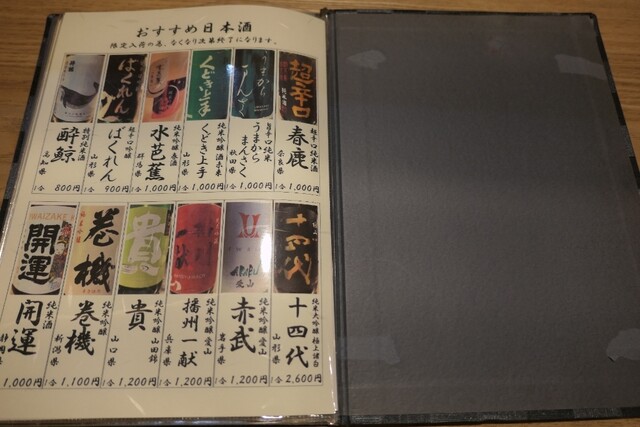 おすすめ日本酒
限定入荷の為、なくなり次第終了になります。
超辛口
超辛口純米酒
春鹿
奈良県
1合 1,000円
うまからまんさく
旨辛口純米
うまからまんさく
秋田県
1合 1,000円
くどき上手
純米吟醸 酒未来
くどき上手
山形県
1合 1,000円
純米吟醸春酒
水芭蕉
群馬県
1合 1,000円
ばくれん
超辛口吟醸
ばくれん
山形県
1合 900円
酔鯨
特別純米酒
酔鯨
高知県
1合 800円
十四代
純米大吟醸 極上諸白
十四代
山形県
1合 2,600円
AKABU
愛山
純米吟醸 愛山
赤武
岩手県
1合 1,200円
純米吟醸 愛山
播州一献
兵庫県
1合 1,200円
貴
純米吟醸 山田錦
貴
山口県
1合 1,200円
巻機
純米吟醸
巻機
新潟県
1合 1,100円
IWAIZAKE
開運
純米酒
開運
静岡県
1,000円